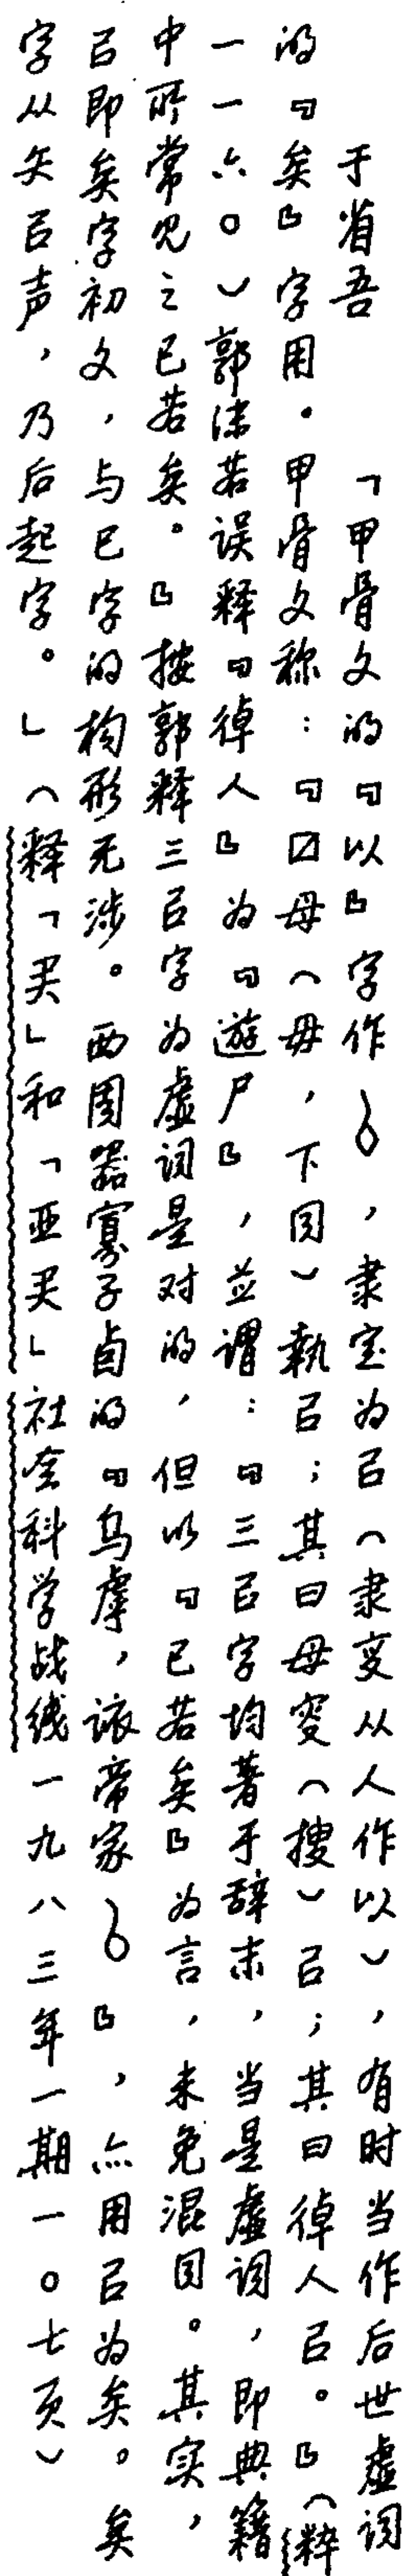 于省吾　「甲骨文的『以』字作，隶定为㠯（隶变从人作以），有时当作后世虚词
的『矣』字用。甲骨文称：『囗母（毋，下同）執㠯；其曰母叜（搜）㠯；其曰倬人㠯。』（粹
一一六〇）郭沫若误释『倬人』为『遊尸』，並谓：『三㠯字均著于辞末，当是虚词，即典籍
中所常见之已若矣。』按郭释三㠯字为虚词是对的，但以『已若矣』为言，未免混同。其实，
㠯即矣字初文，与巳字的构形无涉。西周器寡子卣的『乌虖，𧧑帝家』，亦用㠯为矣。矣
字从矢㠯声，乃后起字。」（释「㠱」和「亚㠱」社会科学战线一九八三年一期一〇七页）